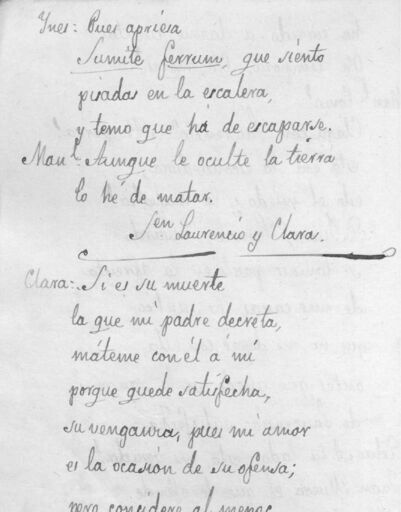 Ynes: Pues apriesa
Sumite ferrum, que siento
pisadas en la escalera,
y temo que há de escaparse.
Man.l Aunque le oculte la tierra
lo hé de matar.
Sen Laurencio y Clara.
Clara: Si es su muerte
la que mi padre decreta,
máteme con él a mi
porque quede satisfecha,
su venganza, pues mi amor
es la ocasión de su ofensa;
pero considere al menos